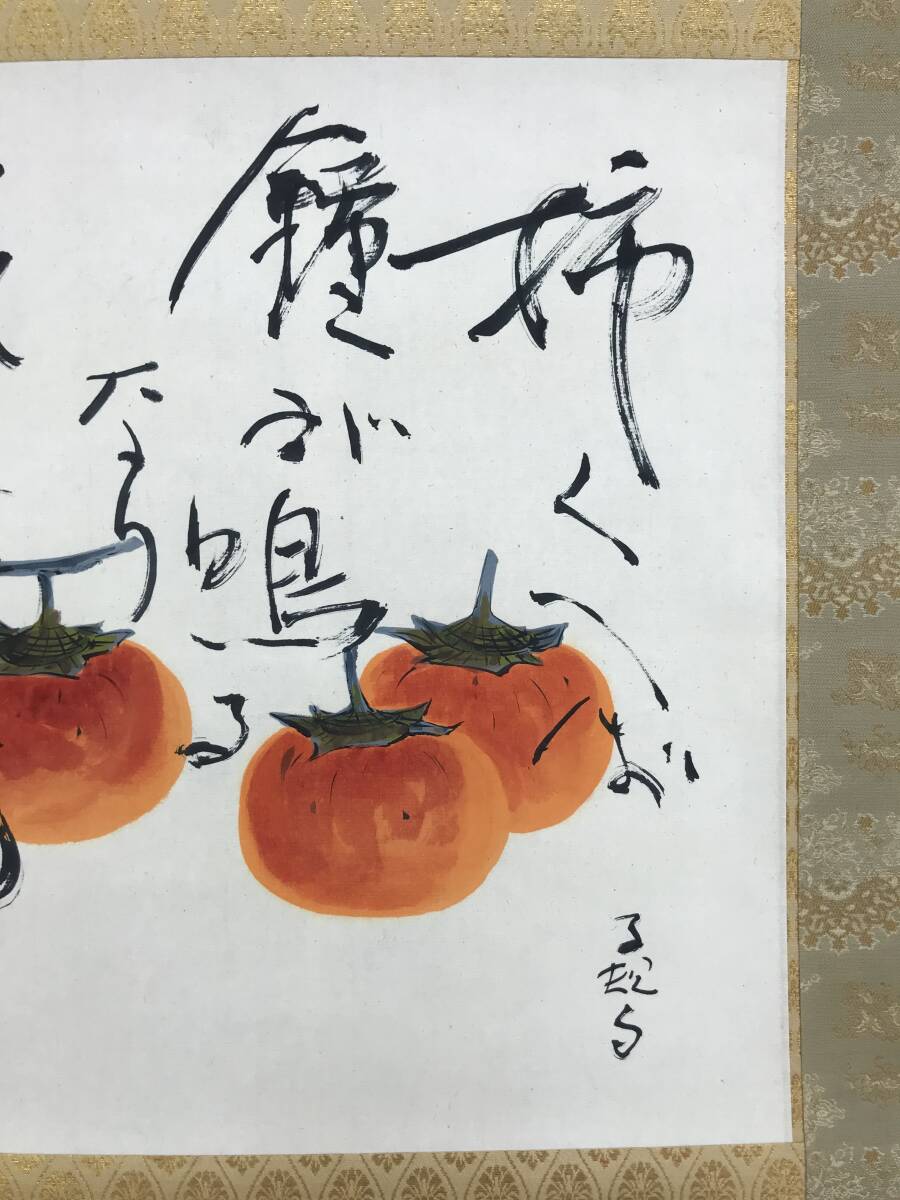 柿くへば
鐘が鳴る
なり
子規句